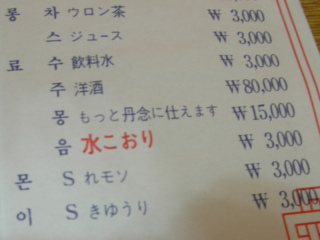 롱 차 ウロン茶 ₩ 3,000
스 ジュース ₩ 3,000
료 수 飲料水 ₩ 3,000
주 洋酒 ₩80,000
몽 もっと丹念に仕えます ₩15,000
음 水こおり ₩ 3,000
몬 S れモソ ₩ 3,000
이 S きゆうり ₩ 3,000